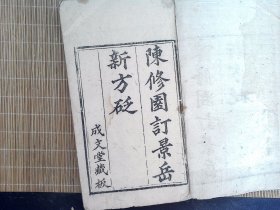 陳修園訂景岳
新方砭
成文堂藏板